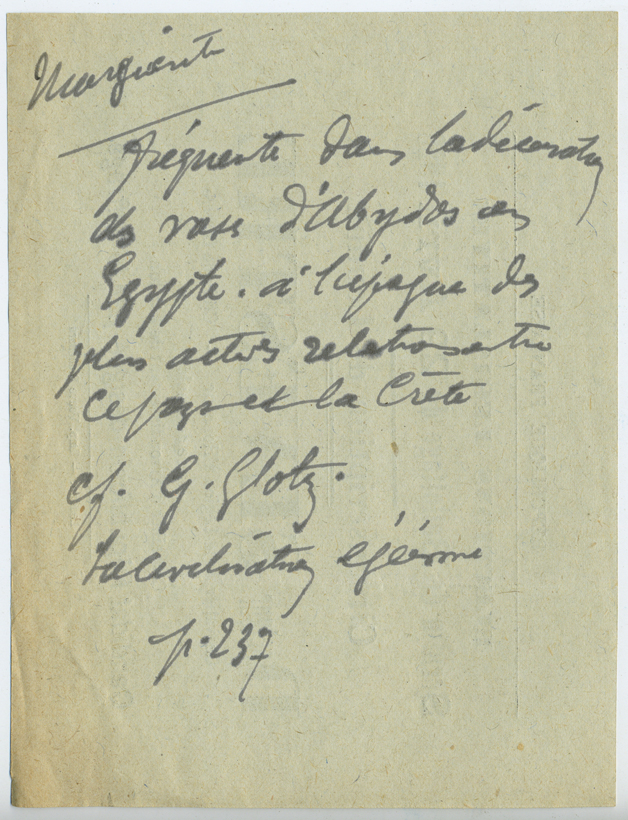 Marguerite
fréquente dans la décoration
des vases d'Abydos en
Egypte. à l'époque des
plus actives relations entre
ce pays et la Crète
cf. G. Glotz.
La civilisation égéenne
p. 237